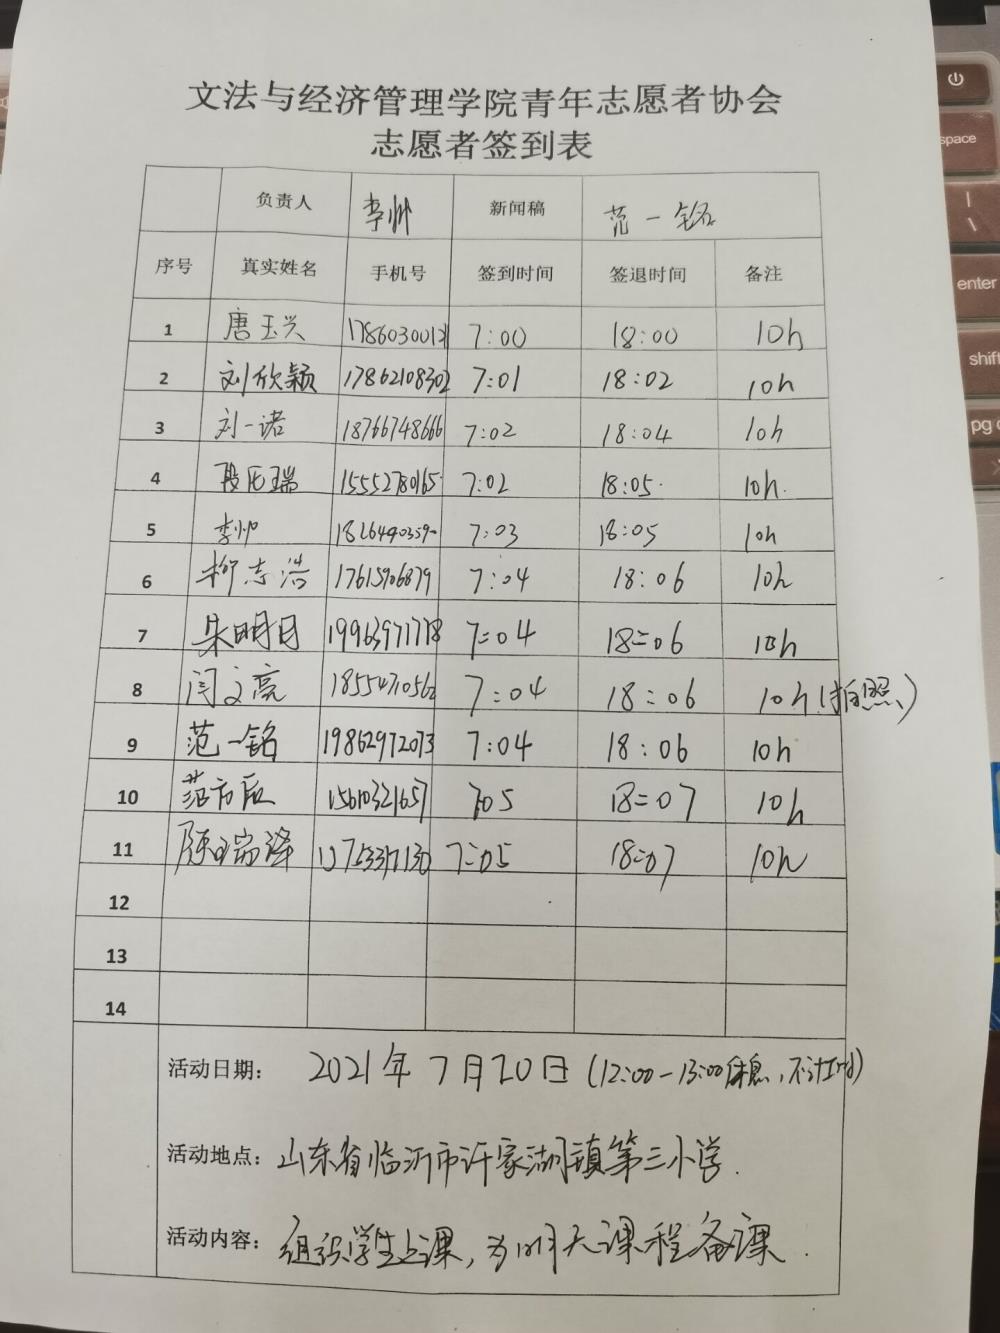 文法与经济管理学院青年志愿者协会
志愿者签到表
负责人 李帅 新闻稿 范一铭
序号 真实姓名 手机号 签到时间 签退时间 备注
1 唐玉兴 7:00 18:00 10h
2 刘欣颖 17862108302 7:01 18:02 10h
3 刘一诺 18766748666 7:02 18:04 10h
4 15552780165 7:02 18:05 10h.
5 李帅 7:03 18:05 10h
6 柳志浩 17615906879 7:04 18:06 10h
7 朱明月 19963971778 7:04 18:06 10h
8 闫文亮 7:04 18:06 10h(拍照)
9 范一铭 19862972073 7:04 18:06 10h
10 15610321657 7:05 18:07 10h
11 陈瑞泽 7:05 18:07 10h
12
13
14
活动日期: 2021年7月20日(12:00-13:00休息,不计工时)
活动地点: 山东省临沂市许家湖镇第三小学.
活动内容: 组织学生上课,为明天课程备课.
space
enter
shift
pg